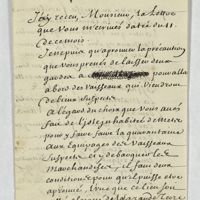 J'ay receu, Monsieur, la Lettre
que vous m'ecrivés datée du 11.
de ce mois.
Je ne puis qu'aprouver la précaution
que vous prenés de laisser deux
gardes a pour alla
a bord des Vaisseaux qui viendront
de lieux suspects.
A l'égard du choix que vous avés
fait de l'isle inhabitée de
pour y faire faire la quarantaine
aux Equipages des Vaisseaux
suspects et y debarquer les
Marchandises, il faut deux
conditions pour qu'il puisse etre
aprouvé; L'une que ce lieu soit